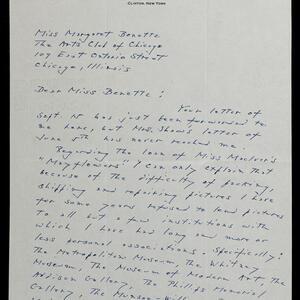 CLINTON, NEW YORK
Miss Margaret Benette
The Arts Club of Chicago
109 East Ontario Street
Chicago, Illinois
Dear Miss Benette:
Your letter of
Sept. 15 has just been forwarded to
me here, but Mrs. Shaw's letter of
June 5th has never reached me.
Regarding the loan of Miss MacIver's
"Mayflowers" I can only explain that
because of the difficulty of packing,
shipping and repairing pictures I have
for some years refused to lend pictures
to all but a few institutions with
which I have had long and more or
less personal associations. Specifically:
the Metropolitan Museum, the Whitney
Museum, the Museum of Modern Art, the
Addison Gallery, the Phillips Memorial
Gallery, the Munson-Williams